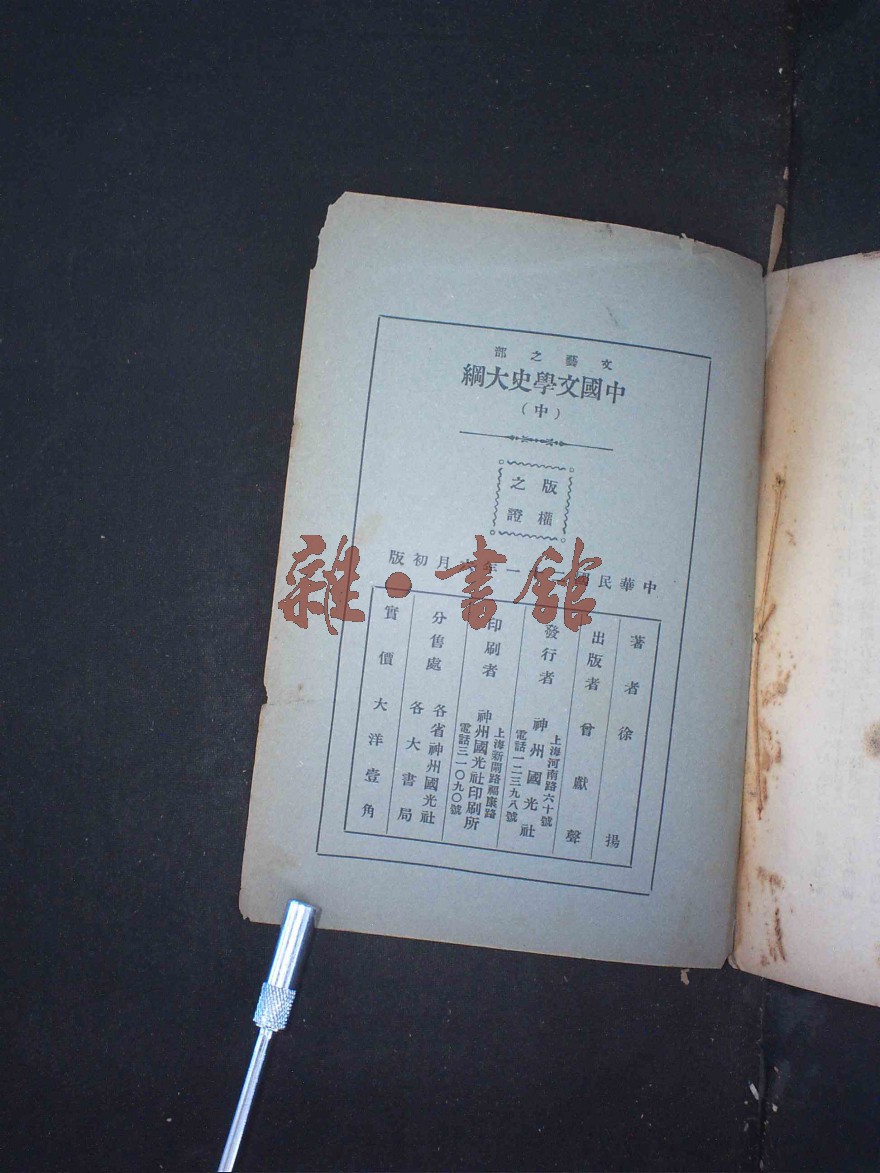 文藝之部
中國文學史大綱
（中）
版權
之證
中華民國 一年 月初版
著者徐揚
出版者曾獻聲
發行者 神州國光社
上海河南路六十號
電話一二三九八號
印刷者 神州國光社印刷所
上海新閘路福康路
電話三一〇九〇號
分售處 各省神州國光社
各大書局
實價大洋壹角
雜·書館